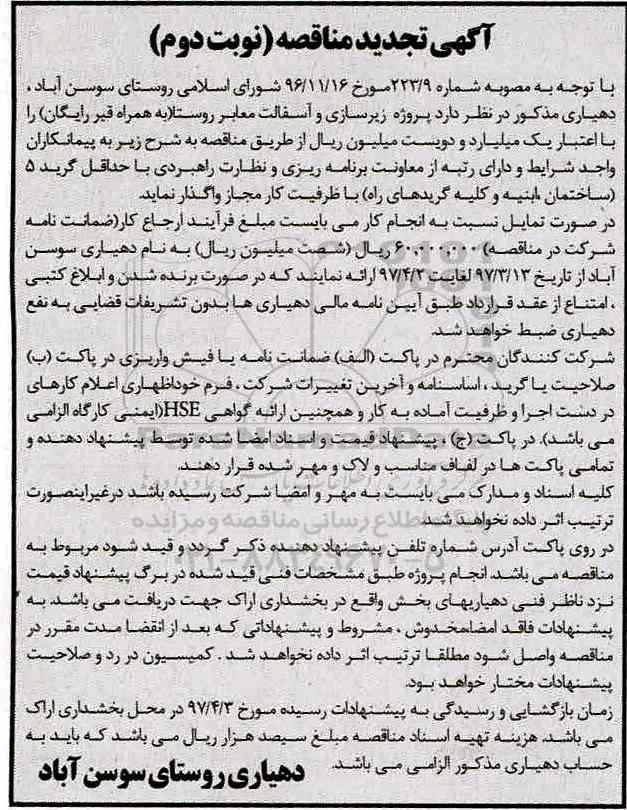 آگهی تجدید مناقصه (نوبت دوم)
با توجه به مصوبه شماره ۲۲۳/۹مورخ ۹۶/۱۱/۱۶ شورای اسلامی روستای سوسن آباد ،
دهیاری مذکور در نظر دارد پروژه زیرسازی و آسفالت معابر روستا(به همراه قیر رایگان) را
با اعتبار یک میلیارد و دویست میلیون ریال از طریق مناقصه به شرح زیر به پیمانکاران
واجد شرایط و دارای رتبه از معاونت برنامه ریزی و نظارت راهبردی با حداقل گرید ۵
(ساختمان ،ابنیه و کلیه گریدهای راه) با ظرفیت کار مجاز واگذار نماید.
در صورت تمایل نسبت به انجام کار می بایست مبلغ فرآیند ارجاع کار(ضمانت نامه
شرکت در مناقصه) ۶۰,۰۰۰,۰۰۰ ریال (شصت میلیون ریال) به نام دهیاری سوسن
آباد از تاریخ ۹۷/۳/۱۳ لغایت ۹۷/۴/۲ ارائه نمایند که در صورت برنده شدن و ابلاغ کتبی
، امتناع از عقد قرارداد طبق آیین نامه مالی دهیاری ها بدون تشریفات قضایی به نفع
دهیاری ضبط خواهد شد.
شرکت کنندگان محترم در پاکت (الف) ضمانت نامه یا فیش واریزی در پاکت (ب)
صلاحیت یا گرید ، اساسنامه و آخرین تغییرات شرکت ، فرم خوداظهاری اعلام کارهای
در دست اجرا و ظرفیت آماده به کار و همچنین ارائه گواهی HSE(ایمنی کارگاه الزامی
می باشد). در پاکت (ج) ، پیشنهاد قیمت و اسناد امضا شده توسط پیشنهاد دهنده و
تمامی پاکت ها در لفاف مناسب و لاک و مهر شده قرار دهند.
کلیه اسناد و مدارک می بایست به مهر و امضا شرکت رسیده باشد درغیراینصورت
ترتیب اثر داده نخواهد شد.
در روی پاکت آدرس شماره تلفن پیشنهاد دهنده ذکر گردد و قید شود مربوط به
مناقصه می باشد. انجام پروژه طبق مشخصات فنی قید شده در برگ پیشنهاد قیمت
نزد ناظر فنی دهیاریهای بخش واقع در بخشداری اراک جهت دریافت می باشد. به
پیشنهادات فاقد امضا،مخدوش ، مشروط و پیشنهاداتی که بعد از انقضا مدت مقرر در
مناقصه واصل شود مطلقا ترتیب اثر داده نخواهد شد . کمیسیون در رد و صلاحیت
پیشنهادات مختار خواهد بود.
زمان بازگشایی و رسیدگی به پیشنهادات رسیده مورخ ۹۷/۴/۳ در محل بخشداری اراک
می باشد. هزینه تهیه اسناد مناقصه مبلغ سیصد هزار ریال می باشد که باید به
حساب دهیاری مذکور الزامی می باشد.
دهیاری روستای سوسن آباد